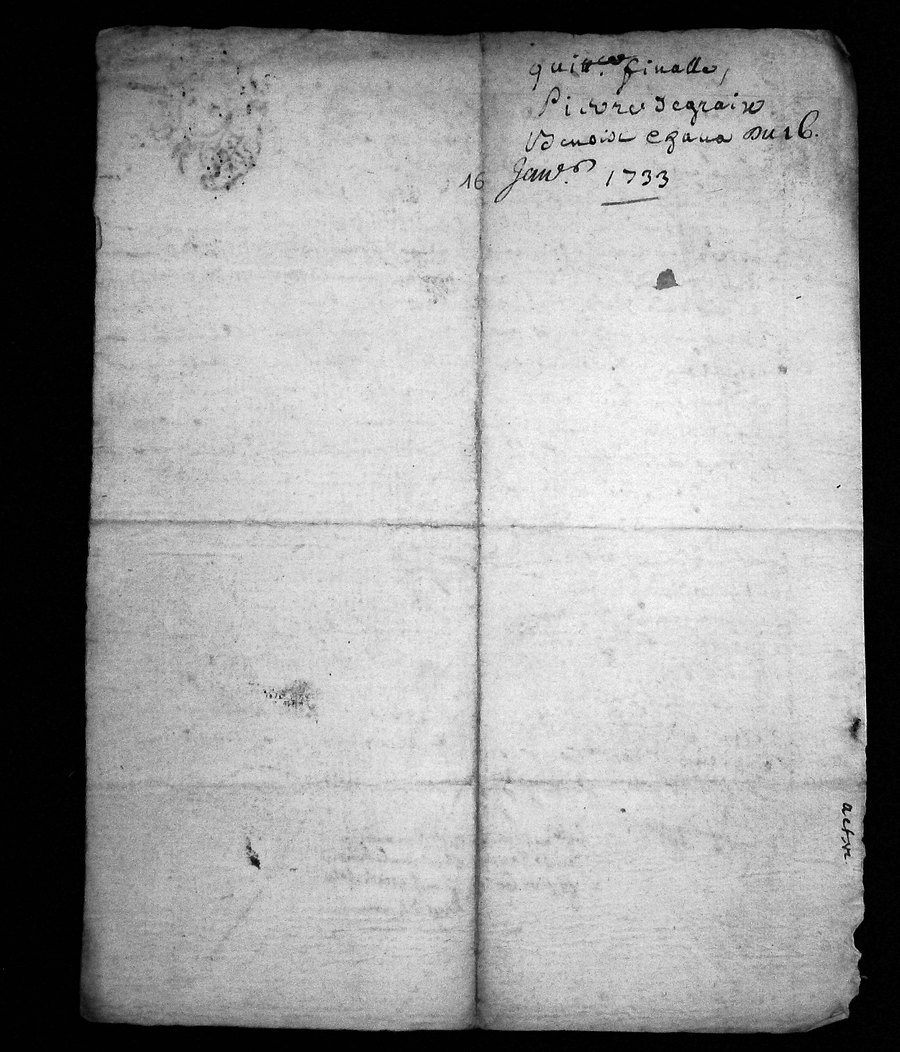 quitt.ce finalle,
Pierre degraix
Benoist Chana Du 16.
16 Janv.er 1733